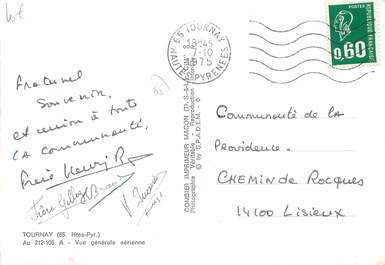 lot
65 TOURNAY
HAUTES PYRENEES
18H45
7-10
1975
POSTES
REPUBLIQUE FRANÇAISE
0,60
Fraternel
Souvenir,
et union à toute
la communauté.
frère Henri R
Frère
COMBIER IMPRIMEUR MACON
Photographie Véritable - Reproduction
© by S.P.A.D.E.M.
Communauté de la
Providence.
CHEMIN de Rocques
14100 Lisieux
TOURNAY (65. Htes-Pyr.)
Ac 212-105 A - Vue générale aérienne